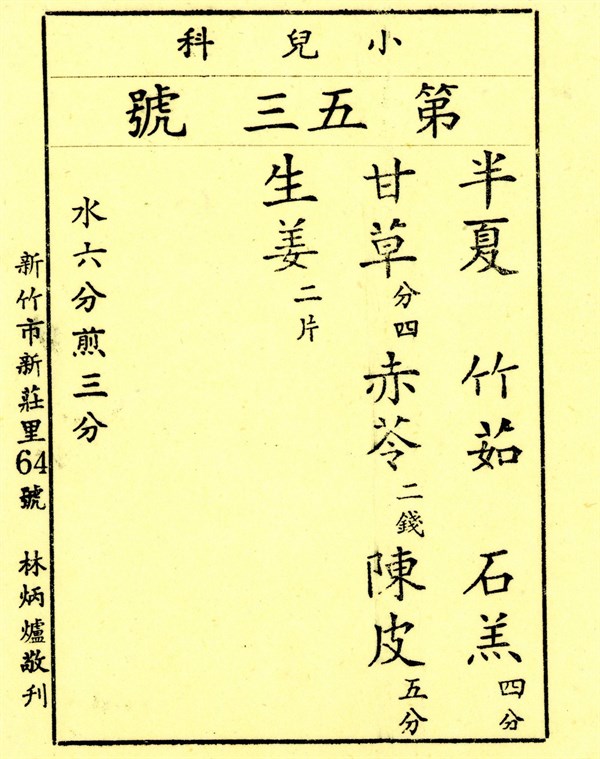 小兒科
第五三號
半夏 竹茹 石羔四分
甘草分四 赤苓二錢 陳皮五分
生姜二片
水六分煎三分
新竹市新莊里64號 林炳爐敬刊